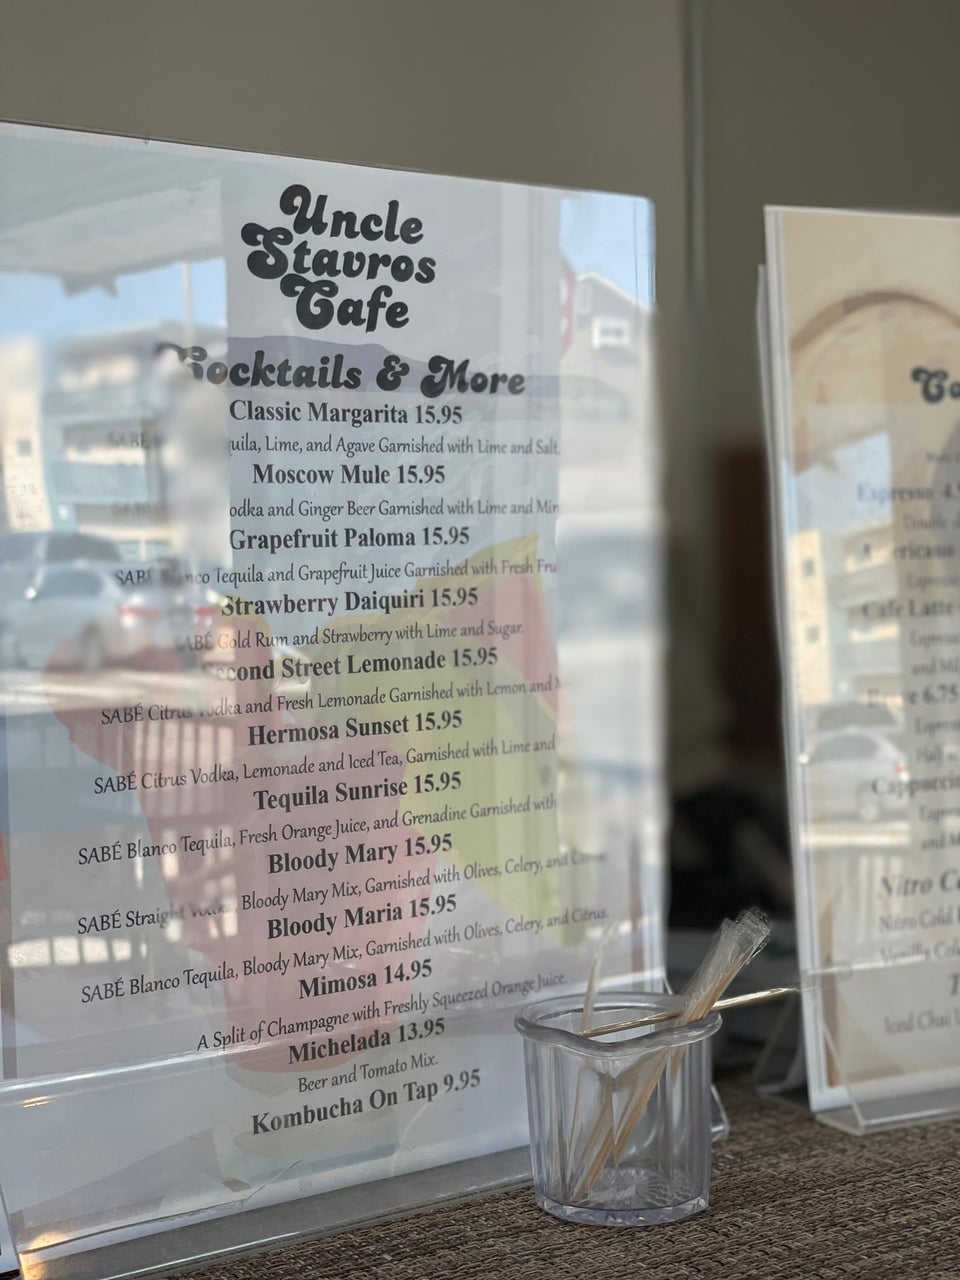 Uncle
Stavros
Cafe
Cocktails & More
Classic Margarita 15.95
SABÉ uila, Lime, and Agave Garnished with Lime and Salt.
Moscow Mule 15.95
odka and Ginger Beer Garnished with Lime and Min
Grapefruit Paloma 15.95
SABÉ nco Tequila and Grapefruit Juice Garnished with Fresh Fru
Strawberry Daiquiri 15.95
SABÉ Gold Rum and Strawberry with Lime and Sugar.
Second Street Lemonade 15.95
SABÉ Citrus Vodka and Fresh Lemonade Garnished with Lemon and M
Hermosa Sunset 15.95
SABÉ Citrus Vodka, Lemonade and Iced Tea, Garnished with Lime and
Tequila Sunrise 15.95
SABÉ Blanco Tequila, Fresh Orange Juice, and Grenadine Garnished with
Bloody Mary 15.95
SABÉ Straight Vodka, Bloody Mary Mix, Garnished with Olives, Celery, and Citrus.
Bloody Maria 15.95
SABÉ Blanco Tequila, Bloody Mary Mix, Garnished with Olives, Celery, and Citrus.
Mimosa 14.95
A Split of Champagne with Freshly Squeezed Orange Juice.
Michelada 13.95
Beer and Tomato Mix.
Kombucha On Tap 9.95
Co
Espresso 4.9
Cafe Latte
6.75
Cappuccin
Nitro Co
Nitro Cold
Iced Chai L